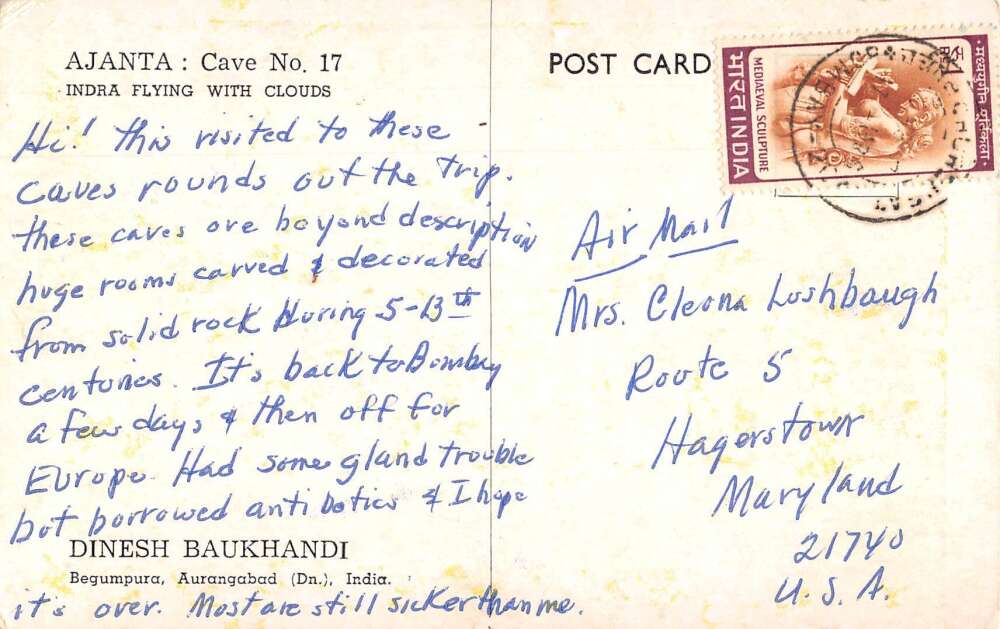 AJANTA : Cave No. 17
INDRA FLYING WITH CLOUDS
Hi! this visited to these
caves rounds out the trip.
these caves are beyond description
huge rooms carved & decorated
from solid rock during 5-13th
centuries. It's back to Bombay
a few days & then off for
Europe. Had some gland trouble
but borrowed antibotics & I hope
DINESH BAUKHANDI
Begumpura, Aurangabad (Dn.), India.
it's over. Most are still sicker than me.
POST CARD
भारत INDIA
MEDIAEVAL SCULPTURE
मध्ययुगीन मूर्तिकला
Air Mail
Mrs. Cleona Lushbaugh
Route 5
Hagerstown
Maryland
21740
U.S.A.